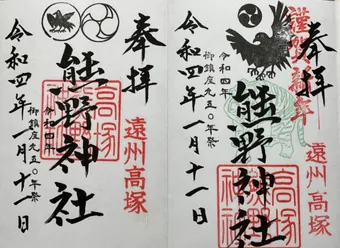 奉拝
遠州高塚
熊野神社
令和四年
御鎮座九五〇年祭
令和四年一月十一日
謹賀新年
奉拝
遠州高塚
熊野神社
令和四年
御鎮座九五〇年祭
令和四年一月十一日